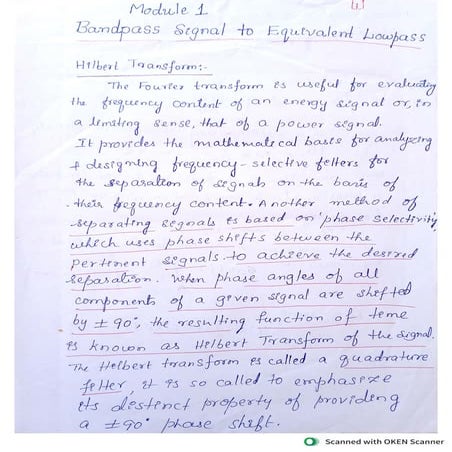 Module 1
Bandpass Signal to Equivalent Lowpass
Hilbert Transform:-
The Fourier transform is useful for evaluating
the frequency content of an energy signal or, in
a limiting sense, that of a power signal.
It provides the mathematical basis for analyzing
& designing frequency-selective filters for
the separation of signals on the basis of
their frequency content. Another method of
separating signals is based on phase selectivity
which uses phase shifts between the
pertinent signals to achieve the desired
separation. When phase angles of all
components of a given signal are shifted
by ±90°, the resulting function of time
is known as Hilbert Transform of the signal.
The Hilbert transform is called a quadrature
filter, it is so called to emphasize
its distinct property of providing
a ±90° phase shift.
Scanned with OKEN Scanner